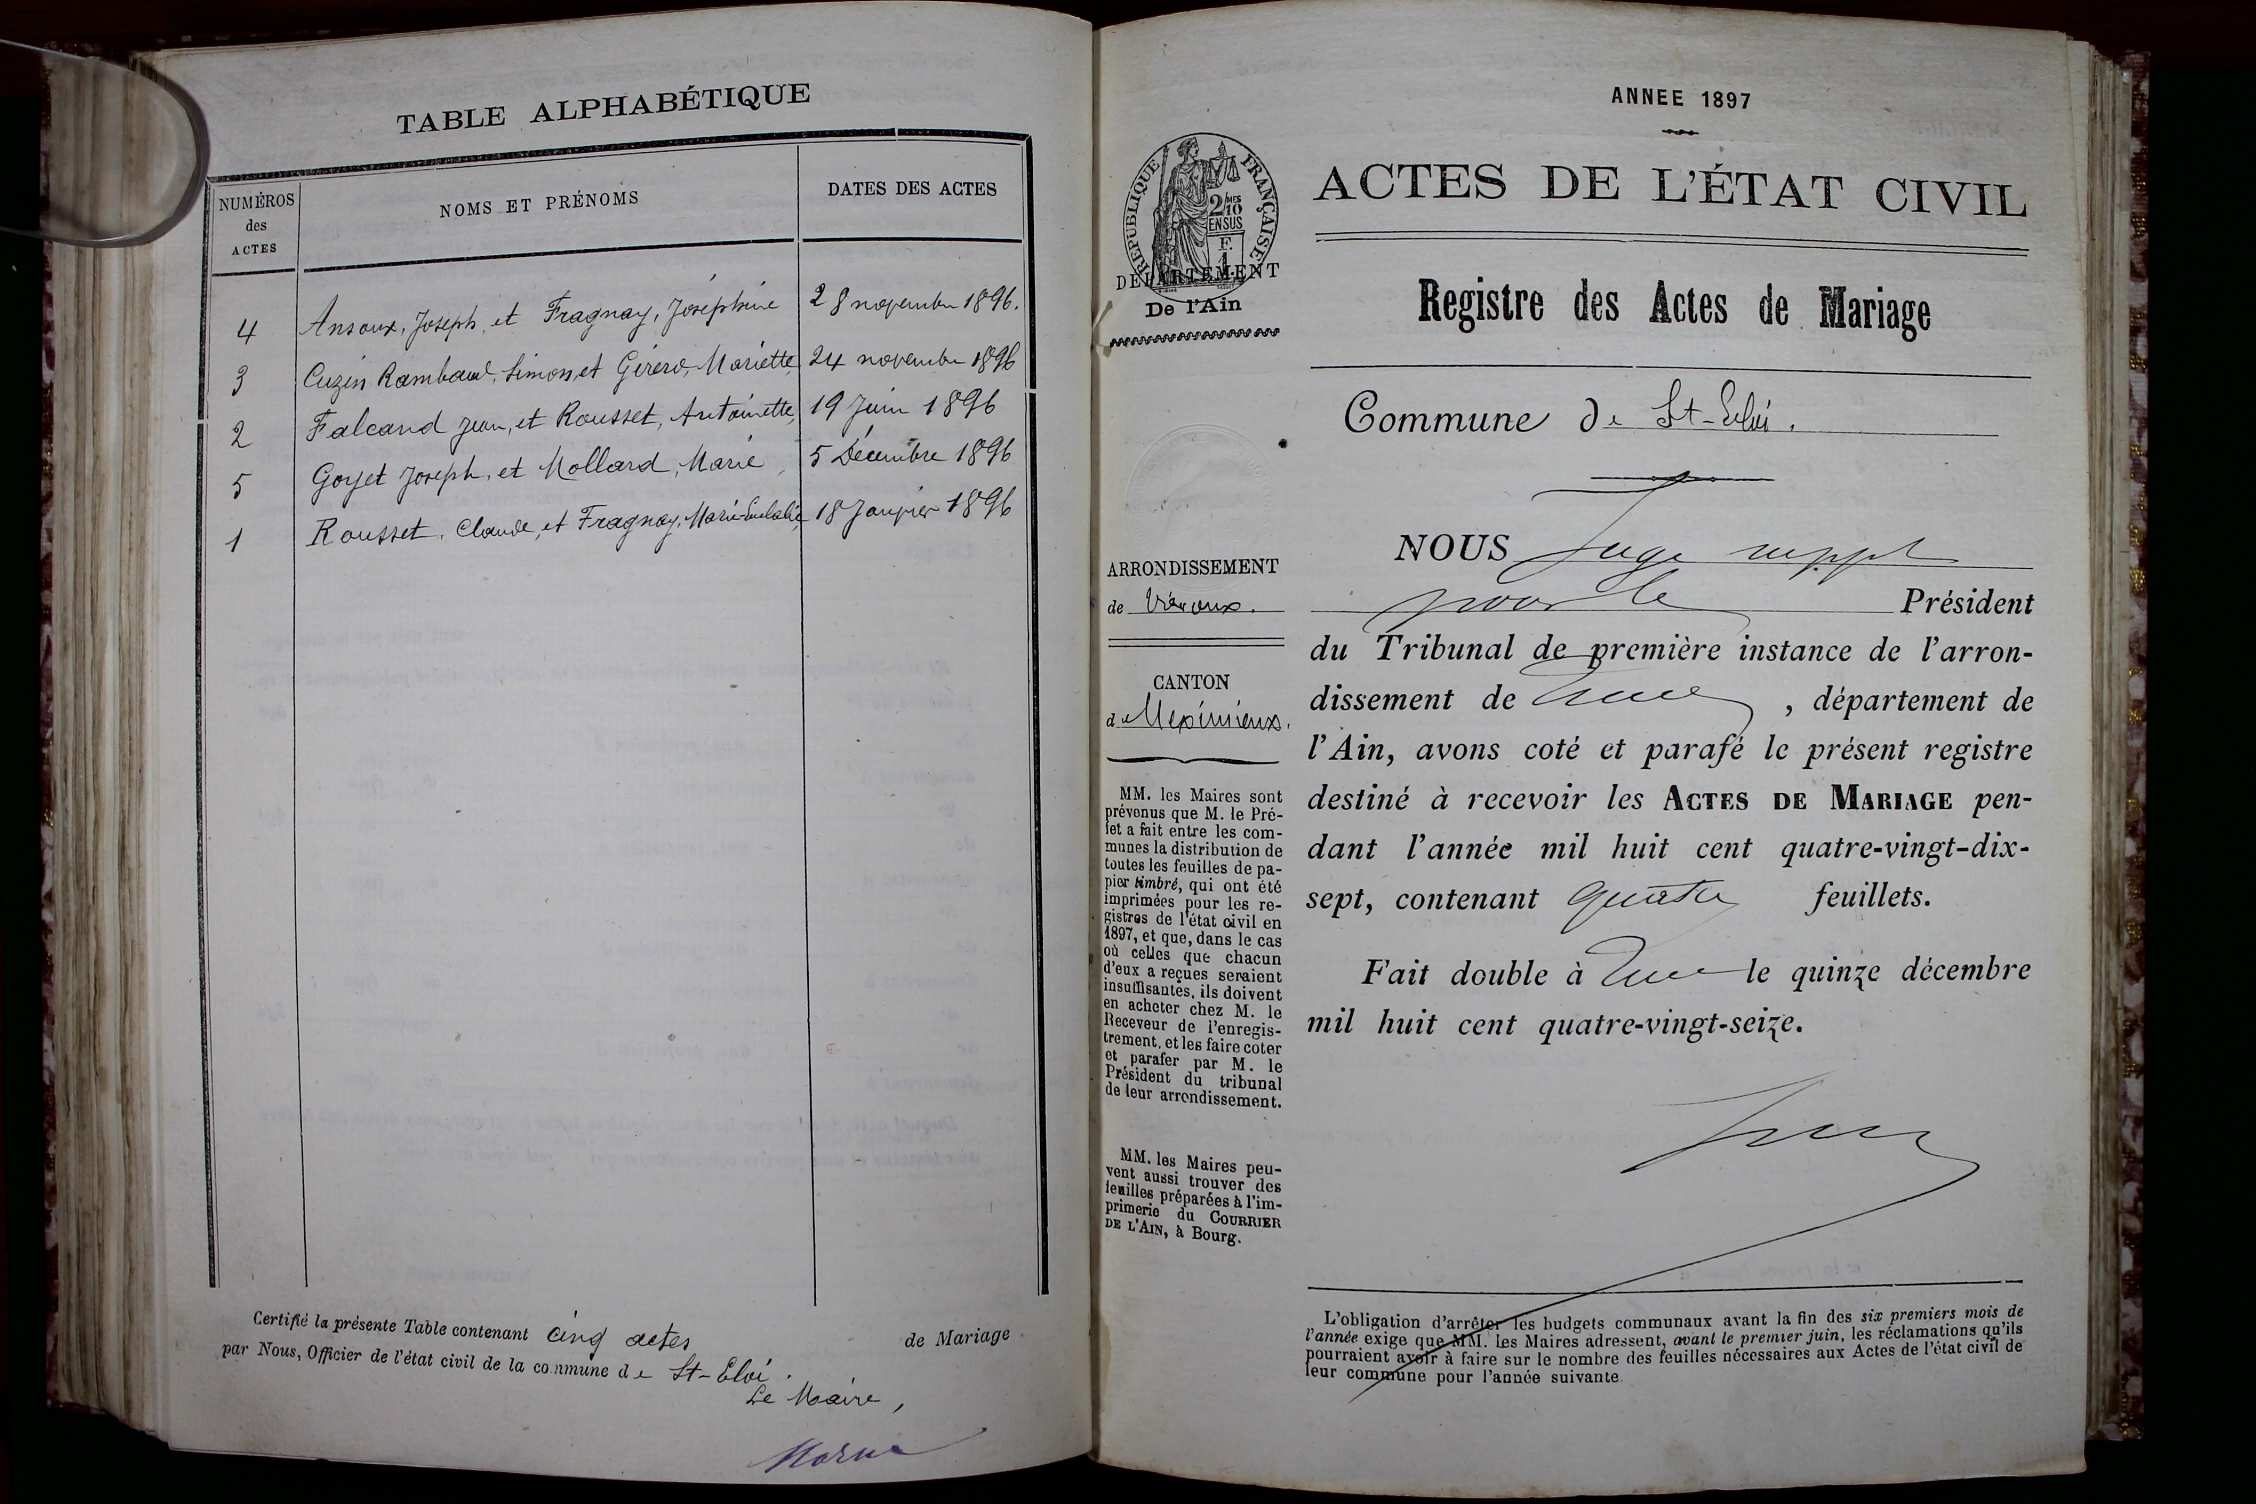 TABLE ALPHABÉTIQUE
NUMÉROS des ACTES
NOMS ET PRÉNOMS
DATES DES ACTES
4 Ansoux, Joseph, et Fragnay, Joséphine 28 novembre 1896.
3 Cuzin Rambaud, Simon, et Gérerd, Mariette, 24 novembre 1896
2 Falcand Jean, et Rousset, Antoinette, 19 Juin 1896
5 Goyet Joseph, et Mollard, Marie, 5 Décembre 1896
1 Rousset, Claude, et Fragnay, Marie-Eulalie, 18 Janvier 1896
Certifié la présente Table contenant cinq actes de Mariage
par Nous, Officier de l'état civil de la commune de St-Eloi.
Le Maire,
ANNEE 1897
RÉPUBLIQUE FRANÇAISE
2/10 MES
EN SUS
F.
1
DÉPARTEMENT
De l'Ain
ACTES DE L'ÉTAT CIVIL
Registre des Actes de Mariage
Commune de St-Eloi.
ARRONDISSEMENT
de Trévoux.
CANTON
de Meximieux.
MM. les Maires sont
prévenus que M. le Pré-
fet a fait entre les com-
munes la distribution de
toutes les feuilles de pa-
pier timbré, qui ont été
imprimées pour les re-
gistres de l'état civil en
1897, et que, dans le cas
où celles que chacun
d'eux a reçues seraient
insuffisantes, ils doivent
en acheter chez M. le
Receveur de l'enregis-
trement, et les faire coter
et parafer par M. le
Président du tribunal
de leur arrondissement.
MM. les Maires peu-
vent aussi trouver des
feuilles préparées à l'im-
primerie du COURRIER
DE L'AIN, à Bourg.
NOUS Juge suppt
pour le Président
du Tribunal de première instance de l'arron-
dissement de , département de
l'Ain, avons coté et parafé le présent registre
destiné à recevoir les ACTES DE MARIAGE pen-
dant l'année mil huit cent quatre-vingt-dix-
sept, contenant quatre feuillets.
Fait double à le quinze décembre
mil huit cent quatre-vingt-seize.
L'obligation d'arrêter les budgets communaux avant la fin des six premiers mois de
l'année exige que MM. les Maires adressent, avant le premier juin, les réclamations qu'ils
pourraient avoir à faire sur le nombre des feuilles nécessaires aux Actes de l'état civil de
leur commune pour l'année suivante.